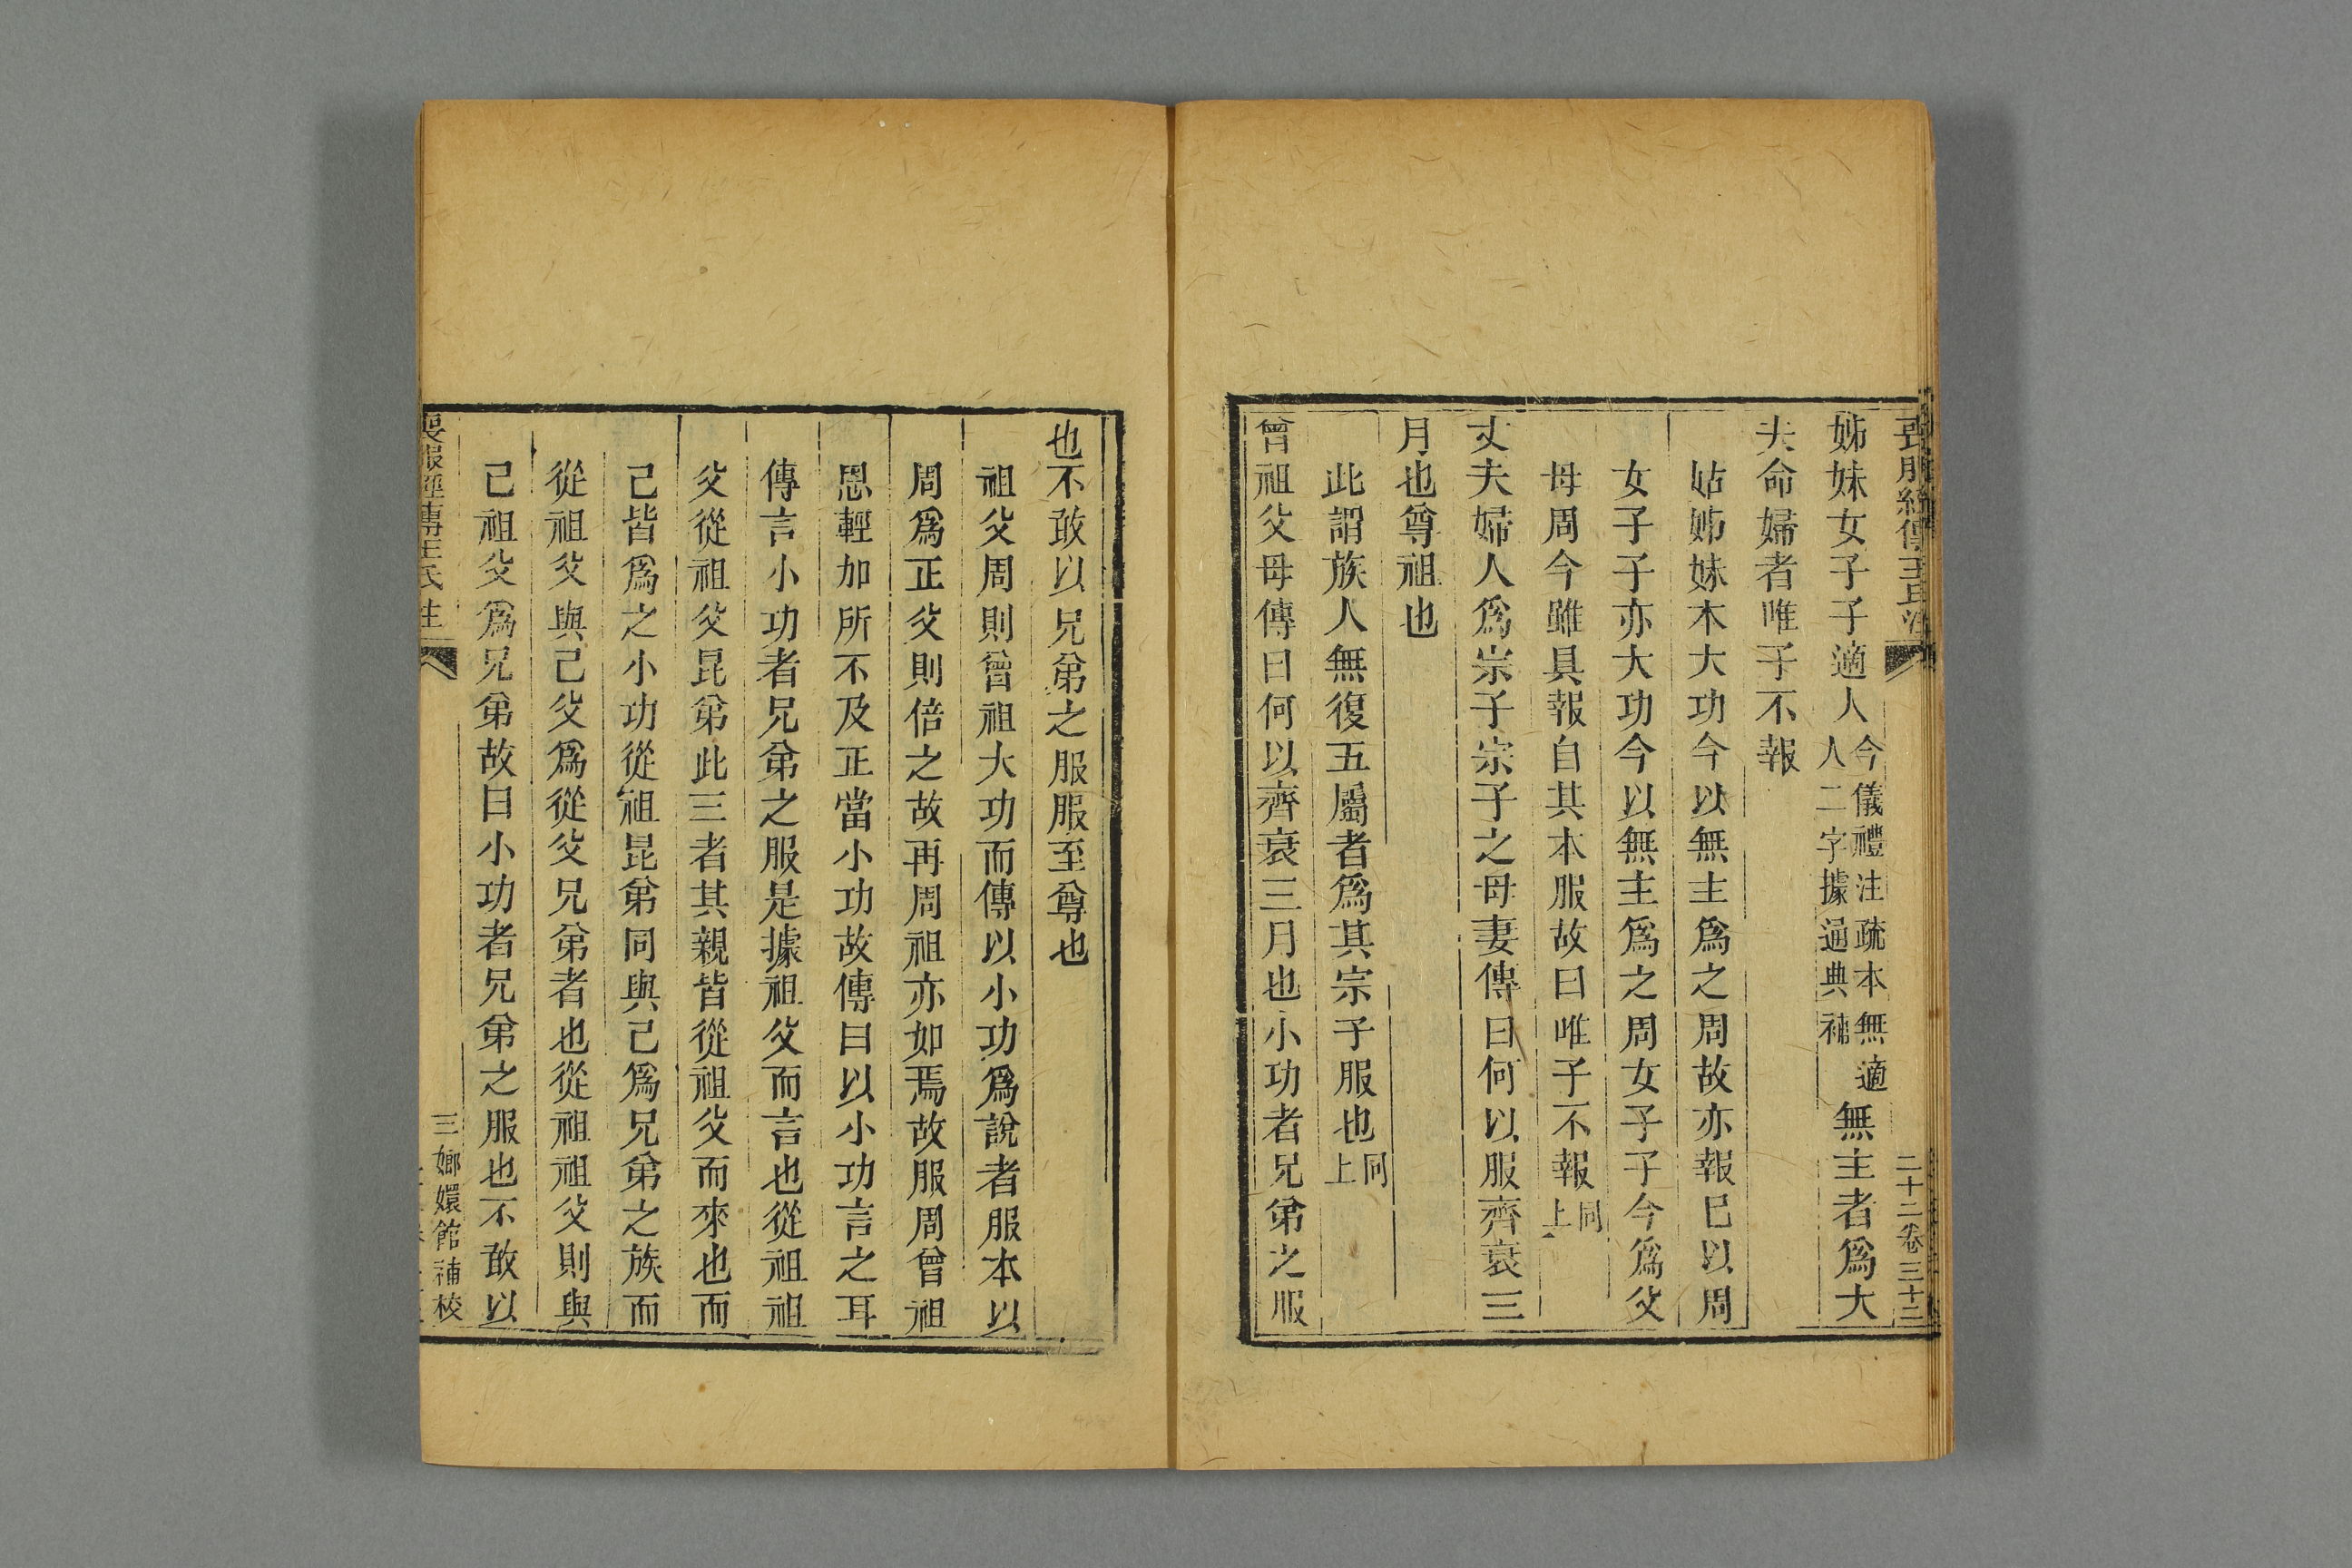 喪服經傳王氏注
二十二卷 三十二
姊妹女子子適人今儀禮注疏本無適人二字據通典補無主者爲大
夫命婦者唯子不報
姑姊妹本大功今以無主爲之周故亦報已以周
女子子亦大功今以無主爲之周女子子今爲父
母周今雖具報自其本服故曰唯子不報同上
丈夫婦人爲宗子宗子之母妻傳曰何以服齊衰三
月也尊祖也
此謂族人無復五屬者爲其宗子服也同上
曾祖父母傳曰何以齊衰三月也小功者兄弟之服
也不敢以兄弟之服服至尊也
祖父周則曾祖大功而傳以小功爲說者服本以
周爲正父則倍之故再周祖亦如焉故服周曾祖
恩輕加所不及正當小功故傳曰以小功言之耳
傳言小功者兄弟之服是據祖父而言也從祖祖
父從祖父昆弟此三者其親皆從祖父而來也而
己皆爲之小功從祖昆弟同與己爲兄弟之族而
從祖父與己父爲從父兄弟者也從祖祖父則與
己祖父爲兄弟故曰小功者兄弟之服也不敢以
喪服經傳王氏注
三 嫏嬛館補校